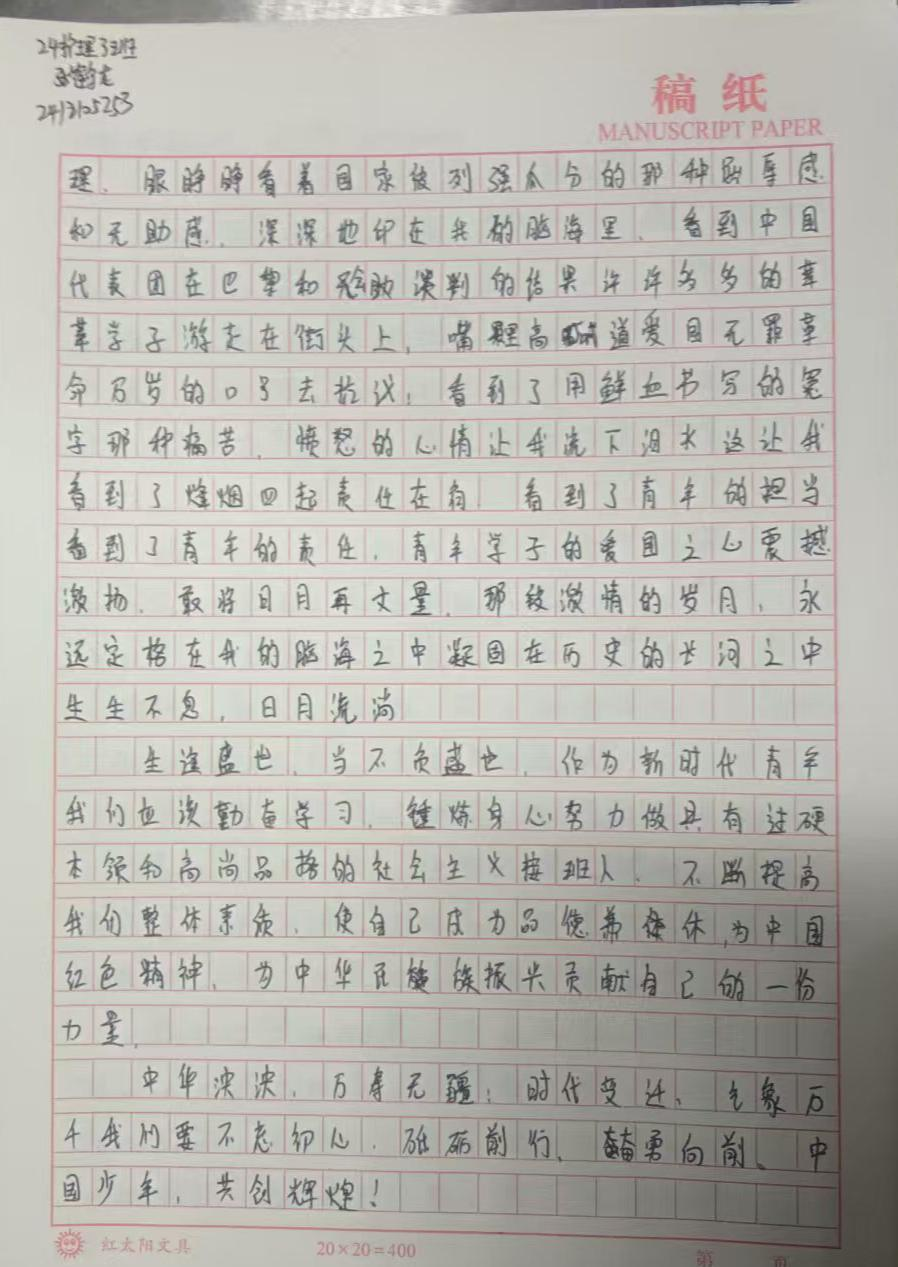 24护理3班
2413125253
稿纸
MANUSCRIPT PAPER
理、眼睁睁看着国家被列强瓜分的那种屈辱感
和无助感、深深地印在我的脑海里、看到中国
代表团在巴黎和会谈判的结果许许多多的莘
莘学子游走在街头上，嘴里高喊道爱国无罪革
命万岁的口号去抗议，看到了用鲜血书写的冤
字那种痛苦、愤怒的心情让我流下泪水这让我
看到了烽烟四起责任在肩、看到了青年的担当
看到了青年的责任、青年学子的爱国之心震撼
激扬、敢将日月再丈量、那段激情的岁月、永
远定格在我的脑海之中凝固在历史的长河之中
生生不息，日月流淌
生逢盛世、当不负盛世、作为新时代青年
我们应该勤奋学习、锤炼身心努力做具有过硬
本领和高尚品格的社会主义接班人、不断提高
我们整体素质、使自己成为品德兼优，为中国
红色精神、为中华民族振兴贡献自己的一份
力量、
中华泱泱、万寿无疆；时代变迁、气象万
千我们要不忘初心、砥砺前行、奋勇向前、中
国少年，共创辉煌！
红太阳文具
20×20=400
第 页